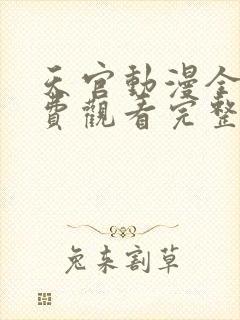 天官動漫全
費觀看完整
兔來割草